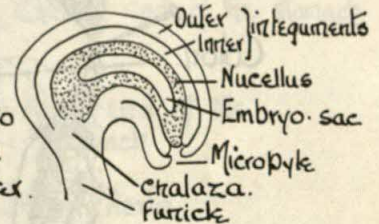 Outer } integuments
Inner
Nucellus
Embryo. sac
Micropyle
chalaza.
Funicle